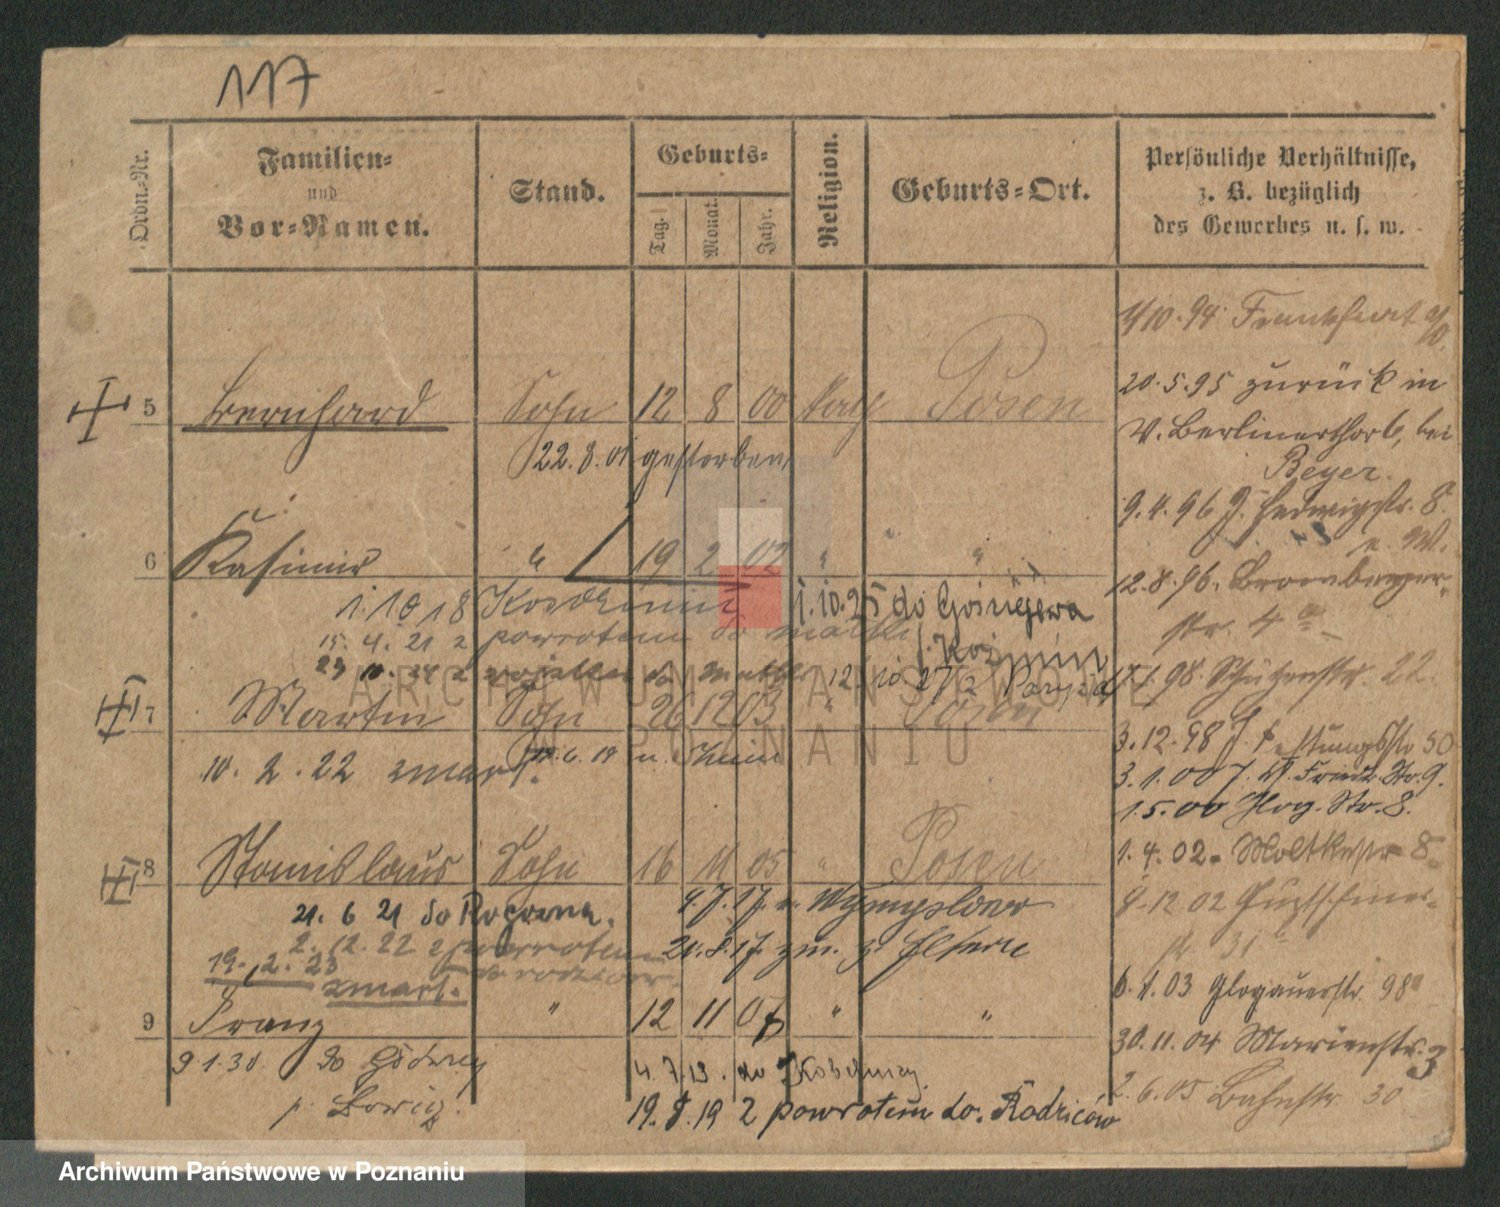 117
Ordn.-Nr.
Familien-
und
Vor-Namen.
Stand.
Geburts-
Tag.
Monat.
Jahr.
Religion.
Geburts-Ort.
Persönliche Verhältnisse,
z. B. bezüglich
des Gewerbes u. s. w.
5 Bernhard Sohn 12 8 00 kath Posen
22.8.01 gestorben
6 Kasimir " 19 2 02 " "
1.10.18 Kozdzinin 1.10.25 do
15.4.21 z powrotem do matki
f. Koźmin
12.10.27 z Paryża
7 Martin Sohn 26 12 03 " Posen
10.2.22 zmarł.
8 Stanislaus Sohn 16 11 05 " Posen
21.6.21 do Rogozna.
2.12.22 z powrotem
do rodziców.
19.2.23
zmarł.
4.7.17. n. Wymyslowo
20.8.17 zur. z. Eltern
9 Franz " 12 11 07 " "
9.1.30 do
p. Borzig.
4.7.13. do Kobelnicy.
19.8.19 z powrotem do Rodziców
1/10.94 Frankfurt a/O.
20.5.95 zurück in
V. Berlinerthorb, bei
Beyer.
9.4.96 J. Hedwigstr. 8.
12.8.96. Bromberger-
str. 4a
1.98 Schützenstr. 22.
3.12.98 J Festungsstr 50
3.1.00 J. W. Friedr. Str. 9.
1.5.00 Glog. Str. 8.
1.4.02. Moltkestr 8.
8.12 02
str 31
6.1.03 Glogauerstr. 98
30.11.04 Marienstr. 3
2.6.05 Bahnstr. 30
ARCHIWUM PAŃSTWOWE
W POZNANIU
Archiwum Państwowe w Poznaniu